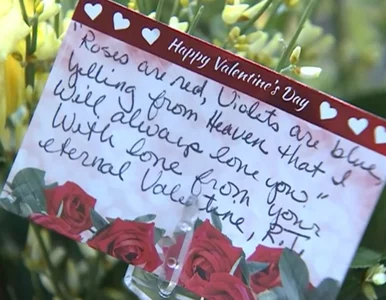 Happy Valentine's Day
"Roses are red, Violets are blue,
yelling from Heaven that I
will always love you."
With love from your
eternal Valentine, R.T.